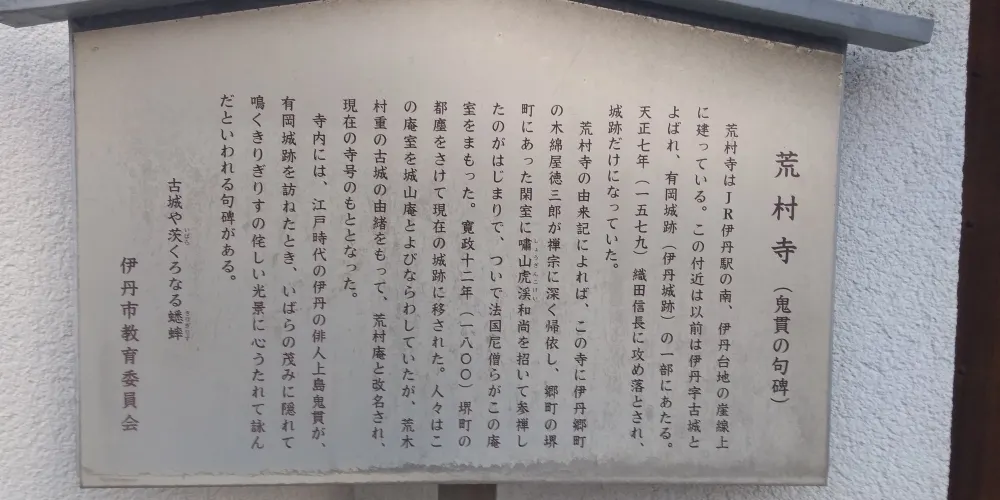 荒村寺（鬼貫の句碑）
荒村寺はＪＲ伊丹駅の南、伊丹台地の崖線上
に建っている。この付近は以前は伊丹字古城と
よばれ、有岡城跡（伊丹城跡）の一部にあたる。
天正七年（一五七九）織田信長に攻め落とされ、
城跡だけになっていた。
荒村寺の由来記によれば、この寺に伊丹郷町
の木綿屋徳三郎が禅宗に深く帰依し、郷町の堺
町にあった閑室に嘯山虎渓和尚を招いて参禅し
たのがはじまりで、ついで法国尼僧らがこの庵
室をまもった。寛政十二年（一八〇〇）堺町の
都塵をさけて現在の城跡に移された。人々はこ
の庵室を城山庵とよびならわしていたが、荒木
村重の古城の由緒をもって、荒村庵と改名され、
現在の寺号のもととなった。
寺内には、江戸時代の伊丹の俳人上島鬼貫が、
有岡城跡を訪ねたとき、いばらの茂みに隠れて
鳴くきりぎりすの侘しい光景に心うたれて詠ん
だといわれる句碑がある。
古城や茨くろなる蟋蟀
伊丹市教育委員会